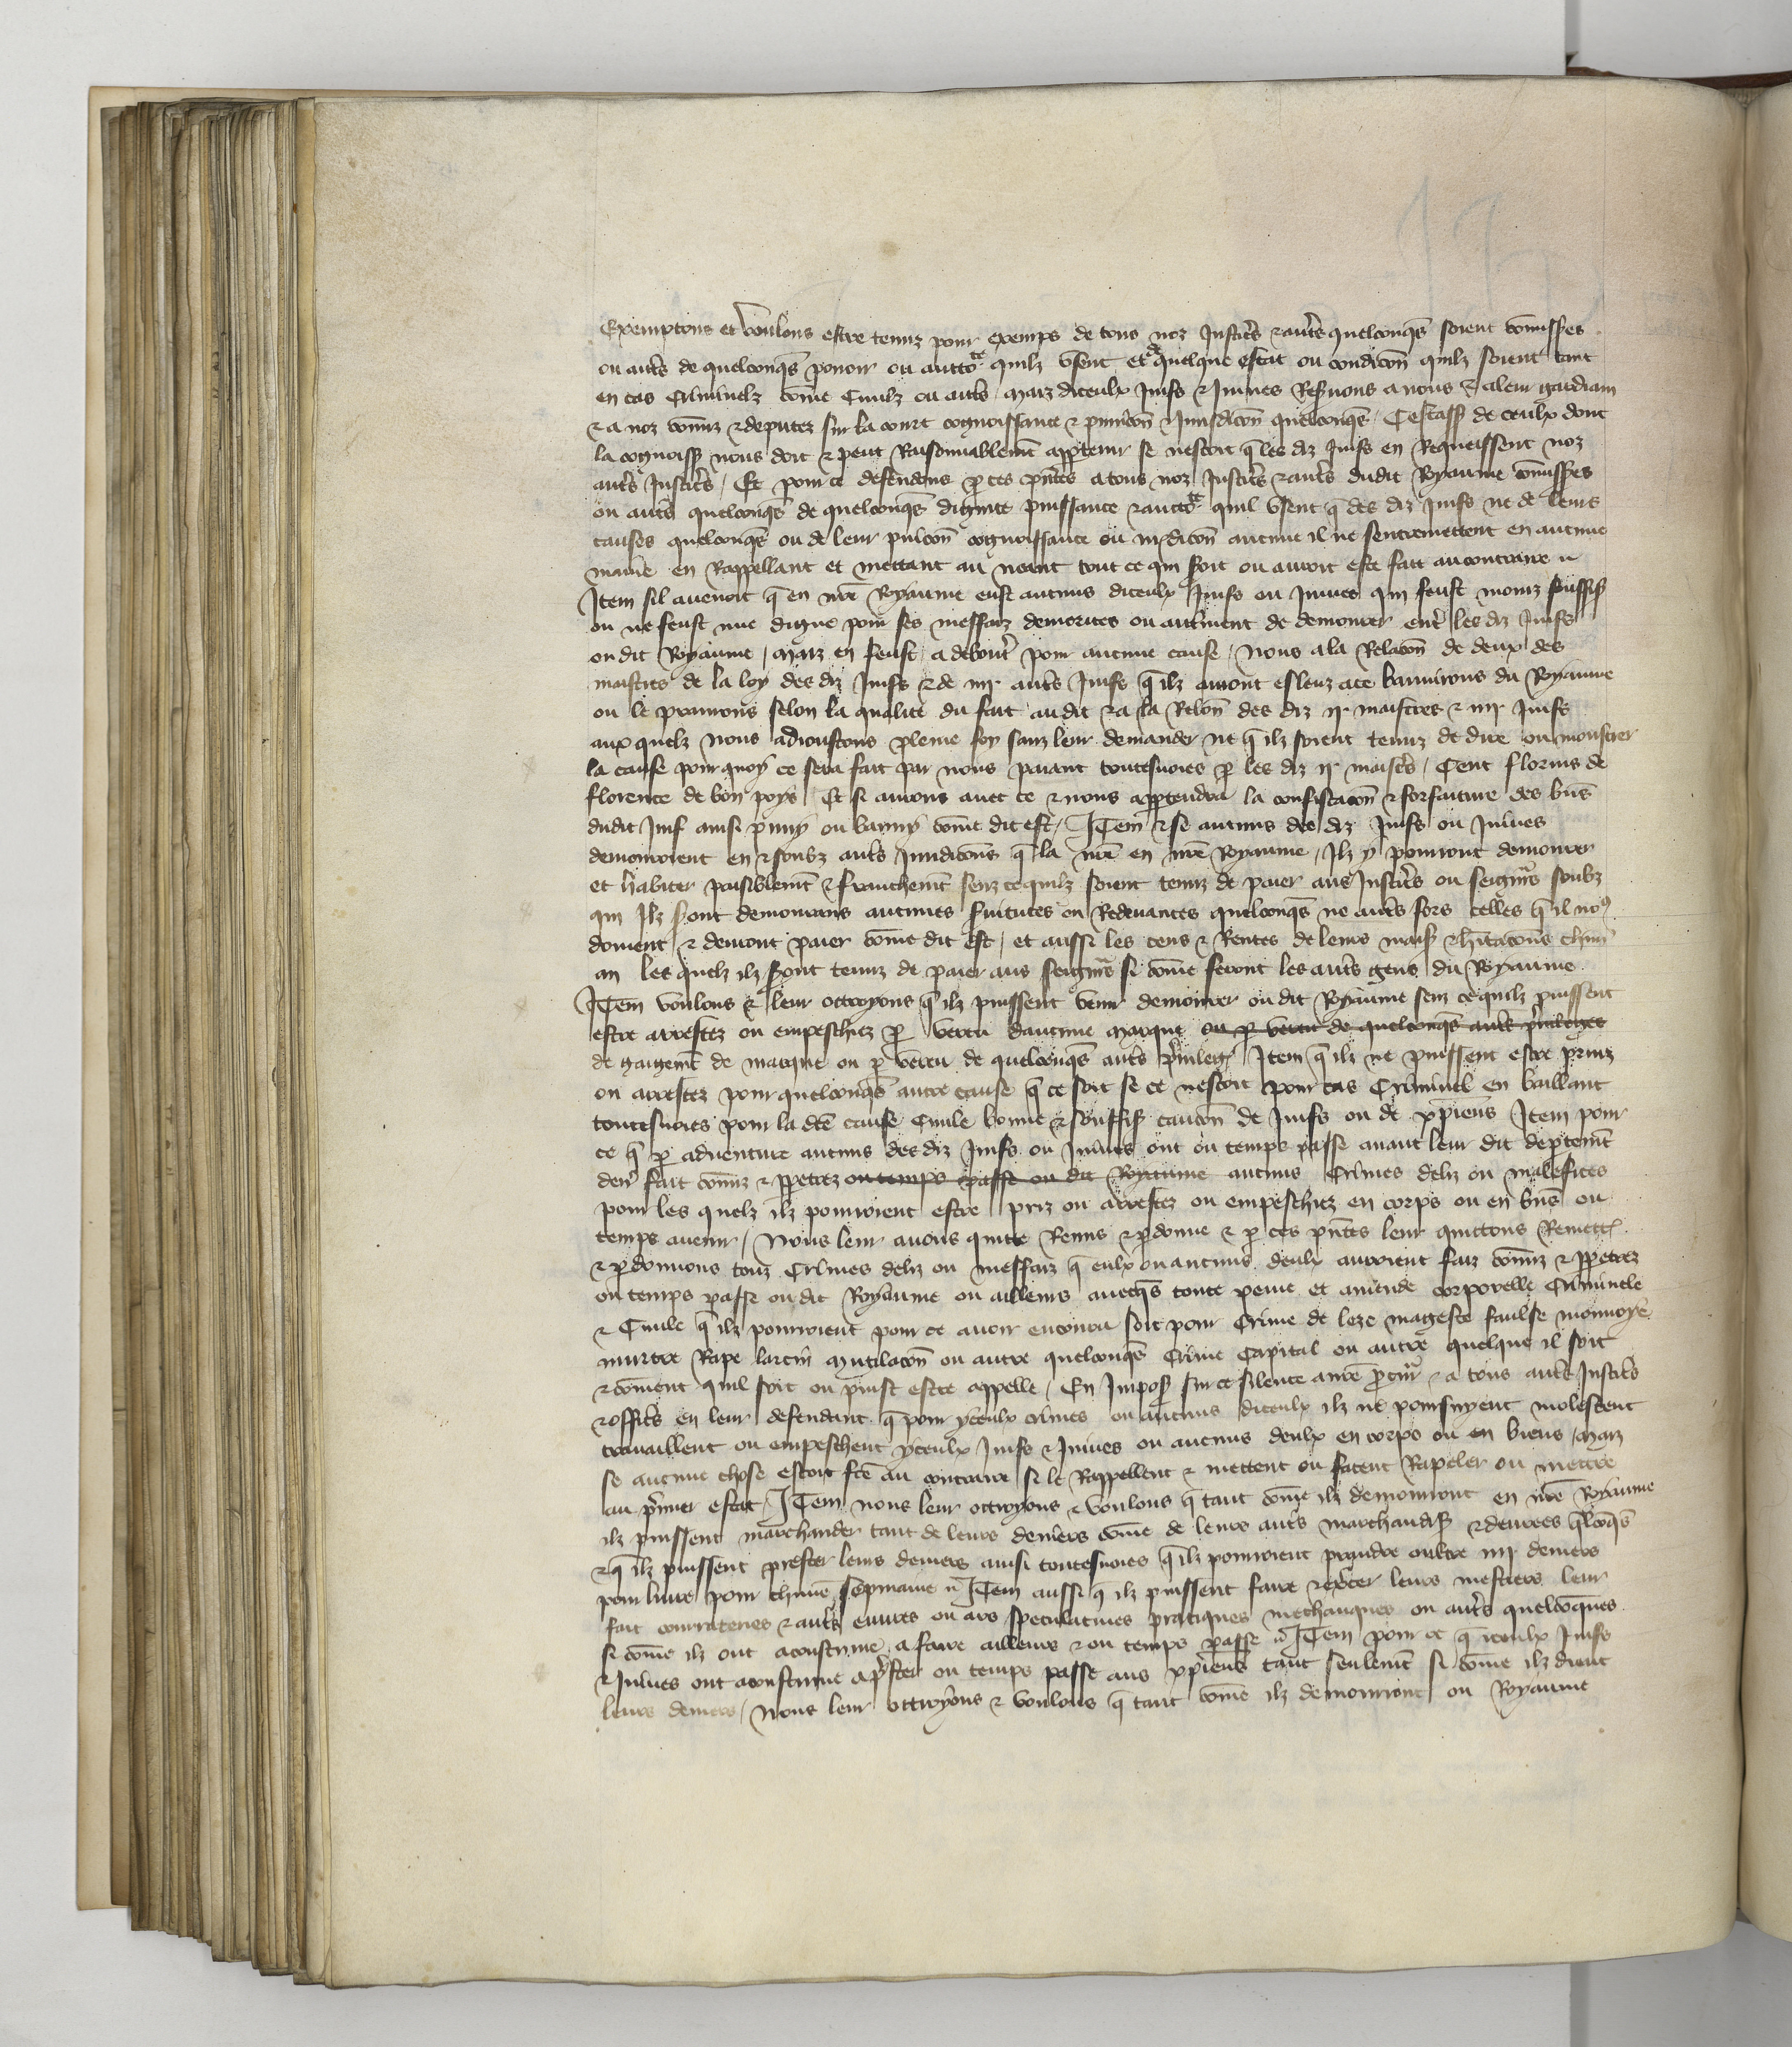 Exemptons et voulons estre tenuz pour exemps de tous noz Justic̃s & aut̃s quelconq̃s soient com̃iss̃es
ou aut̃s de quelconq̃s pouoir ou auttote quilz vsent et de quelque estat ou condic̃on quilz soient tant
en cas Crimĩnelz com̃e Ciuilz ou aut̃s Maiz diceulx Juifs & Juiues Res̃uons a nous & a leur gardiain
& a noz com̃iz & deputez sur la court cognoissance & pinic̃on & Juridic̃on quelconq̃s / Cestass̃ de ceulx dont
la cognoiss̃ nous doit & peut Raisonnablem̃t app̃tenir se nestoit q̃ les diz Juifs en Requeissent noz
aut̃s Justic̃s / Et pour ce defendons p̱ ces p̃ntes a tous noz Justic̃s & aut̃s dudit Royaume com̃iss̃es
ou aut̃s quelconq̃s de quelconq̃s dignite puissance & auctote quil vsent q̃ des diz Juifs ne de leurs
causes quelconq̃s ou de leur punic̃on cognoissance ou iuridic̃on aucune il ne sentremettent en aucune
maniẽ en Rappellant et mettant au neant tout ce qui s̃oit ou auroit este fait au contraire
Item sil auenoit q̃ en nr̃e Royaume eust aucuns diceulx Juifs ou Juiues qui feust moinz souffis̃
ou ne feust mie digne pour ses meffaiz demerites ou autrement de demourer ent̃ les diz Juifs
ou dit Royaume / maiz en feust a debout̃ pour aucune cause / Nous a la Relac̃on de deux des
maistres de la loy des diz Juifs & de iiij aut̃s Juifs q̃ ilz auront esleuz a ce bannirons du Royaume
ou le pranirons selon la qualite du fait au dit & a la Relõn des diz ij maistres & iiij Juifs
aux quelz nous adioustons pleine foy sanz leur demander ne q̃ ilz soient tenuz de dire ou moustrer
la cause pour quoy ce sera fait par nous paiant toutesuoies p̱ les diz ij maistr̃s / Cent florins de
florence de bon poys / Et si aurons auec ce & nous app̱tendra la confiscac̃on & forfaiture des biẽs
dudit Juif ainsi puny ou banny com̃e dit est / Item & se aucuns des diz Juifs ou Juiues
demouroient en & soubz aut̃s Juridic̃ons q̃ la nr̃e en nr̃e Royaume / Ilz y pourront demourer
et habiter paisiblem̃t & franchem̃t senz ce quilz soient tenuz de paier aus Justic̃s ou seign̑s soubz
qui Ilz s̃ont demourans aucunes s̃uitutes ou Redeuances quelconq̃s ne aut̃s fors celles q̃ il no9
doiuent & deuront paier com̃e dit est / et aussi les cens & Rentes de leurs mais̃ & h̃itac̃ons chũn
an les quelz ilz s̃ont tenuz de paier aus seign̑s si com̃e seront les aut̃s gens du Royaume
Item voulons & leur ottroyons q̃ ilz puissent venir demourer ou dit Royaume senz ce quilz puissent
estre arrestez ou empeschiez p̱ vertu daucune marque ou p̱ vertu de quelconq̃s aut̃s p̃uileges
de gaigem̃t de marque ou p̱ vertu de quelconq̃s aut̃s p̃uileg̃ Item q̃ ilz ne puissent estre prinz
ou arrestez pour quelconq̃s autre cause q̃ ce soit se ce nestoit pour cas Criminel en baillant
toutesuoies pour la dc̃e cause Ciuile bonne & souffis̃ cauc̃on de Juifs ou de xp̃iens Item pour
ce q̃ p̱ aduenture aucuns des diz Juifs ou Juiues ont ou temps passe auant leur dit dep̱tem̃t
den̑ fait com̃iz & pp̱etrez ou temps passe ou dit Royaume aucuns Crimes deliz ou malefices
pour les quelz ilz pourroient estre priz ou arrestez ou empeschiez en corps ou en biẽs ou
temps auenir / Nous leur auons quitte Remis & p̱donne & p̱ ces p̃ntes leur quittons Remett̃
& p̱donnons touz Crimes deliz ou meffaiz q̃ eulx ou aucuns deulx auroient faiz com̃iz & pp̱etrez
ou temps passe ou dit Royaume ou ailleurs auecq̃s toute peine et amende corporelle Criminele
& Ciuile q̃ ilz pourroient pour ce auoir encouru soit pour Crime de leze mageste faulse monnoye
murtre Rape larcin Mutilac̃on ou autre quelconq̃s Crime Capital ou autre quelque il soit
& com̃ent quil soit ou puist estre appelle / En Impos̃ sur ce silence a nr̃e p̱cur̃ & a tous aut̃s Justic̃s
& offic̃s en leur defendant q̃ pour yceulx crimes ou aucuns diceulx ilz ne poursuyent molestent
trauaillent ou empeschent yceulx Juifs & Juiues ou aucuns deulx en corps ou en biens / Maiz
se aucune chose estoit fc̃e au contraire si le Rappellent & mettent ou facent Rapeler ou mettre
au p̃mier estat / Item nous leur ottroyons & voulons q̃ tant com̃e ilz demourront en nr̃e Royaume
ilz puissent marchander tant de leurs deniers com̃e de leurs aut̃s marchandis̃ & denrees q̃lconq̃s
& q̃ ilz puissent prester leurs deniers ainsi toutesuoies q̃ ilz pourroient prandre oultre iiij deniers
pour liure pour chũne sepmaine Item aussi q̃ ilz puissent faire & exc̃er leurs mestiers leur
fait courrateries & aut̃s euures ou ars speculatiues pratiques mechaniques ou aut̃s quelcoques
si com̃e ilz ont acoustume a faire ailleurs & ou temps passe Item pour ce q̃ iceulx Juifs
& Juiues ont acoustume a p̃ster ou temps passe aus xp̃iens tant seulem̃t si com̃e ilz dient
leurs deniers / Nous leur ottroyons & voulons q̃ tant com̃e ilz demourront ou Royaume